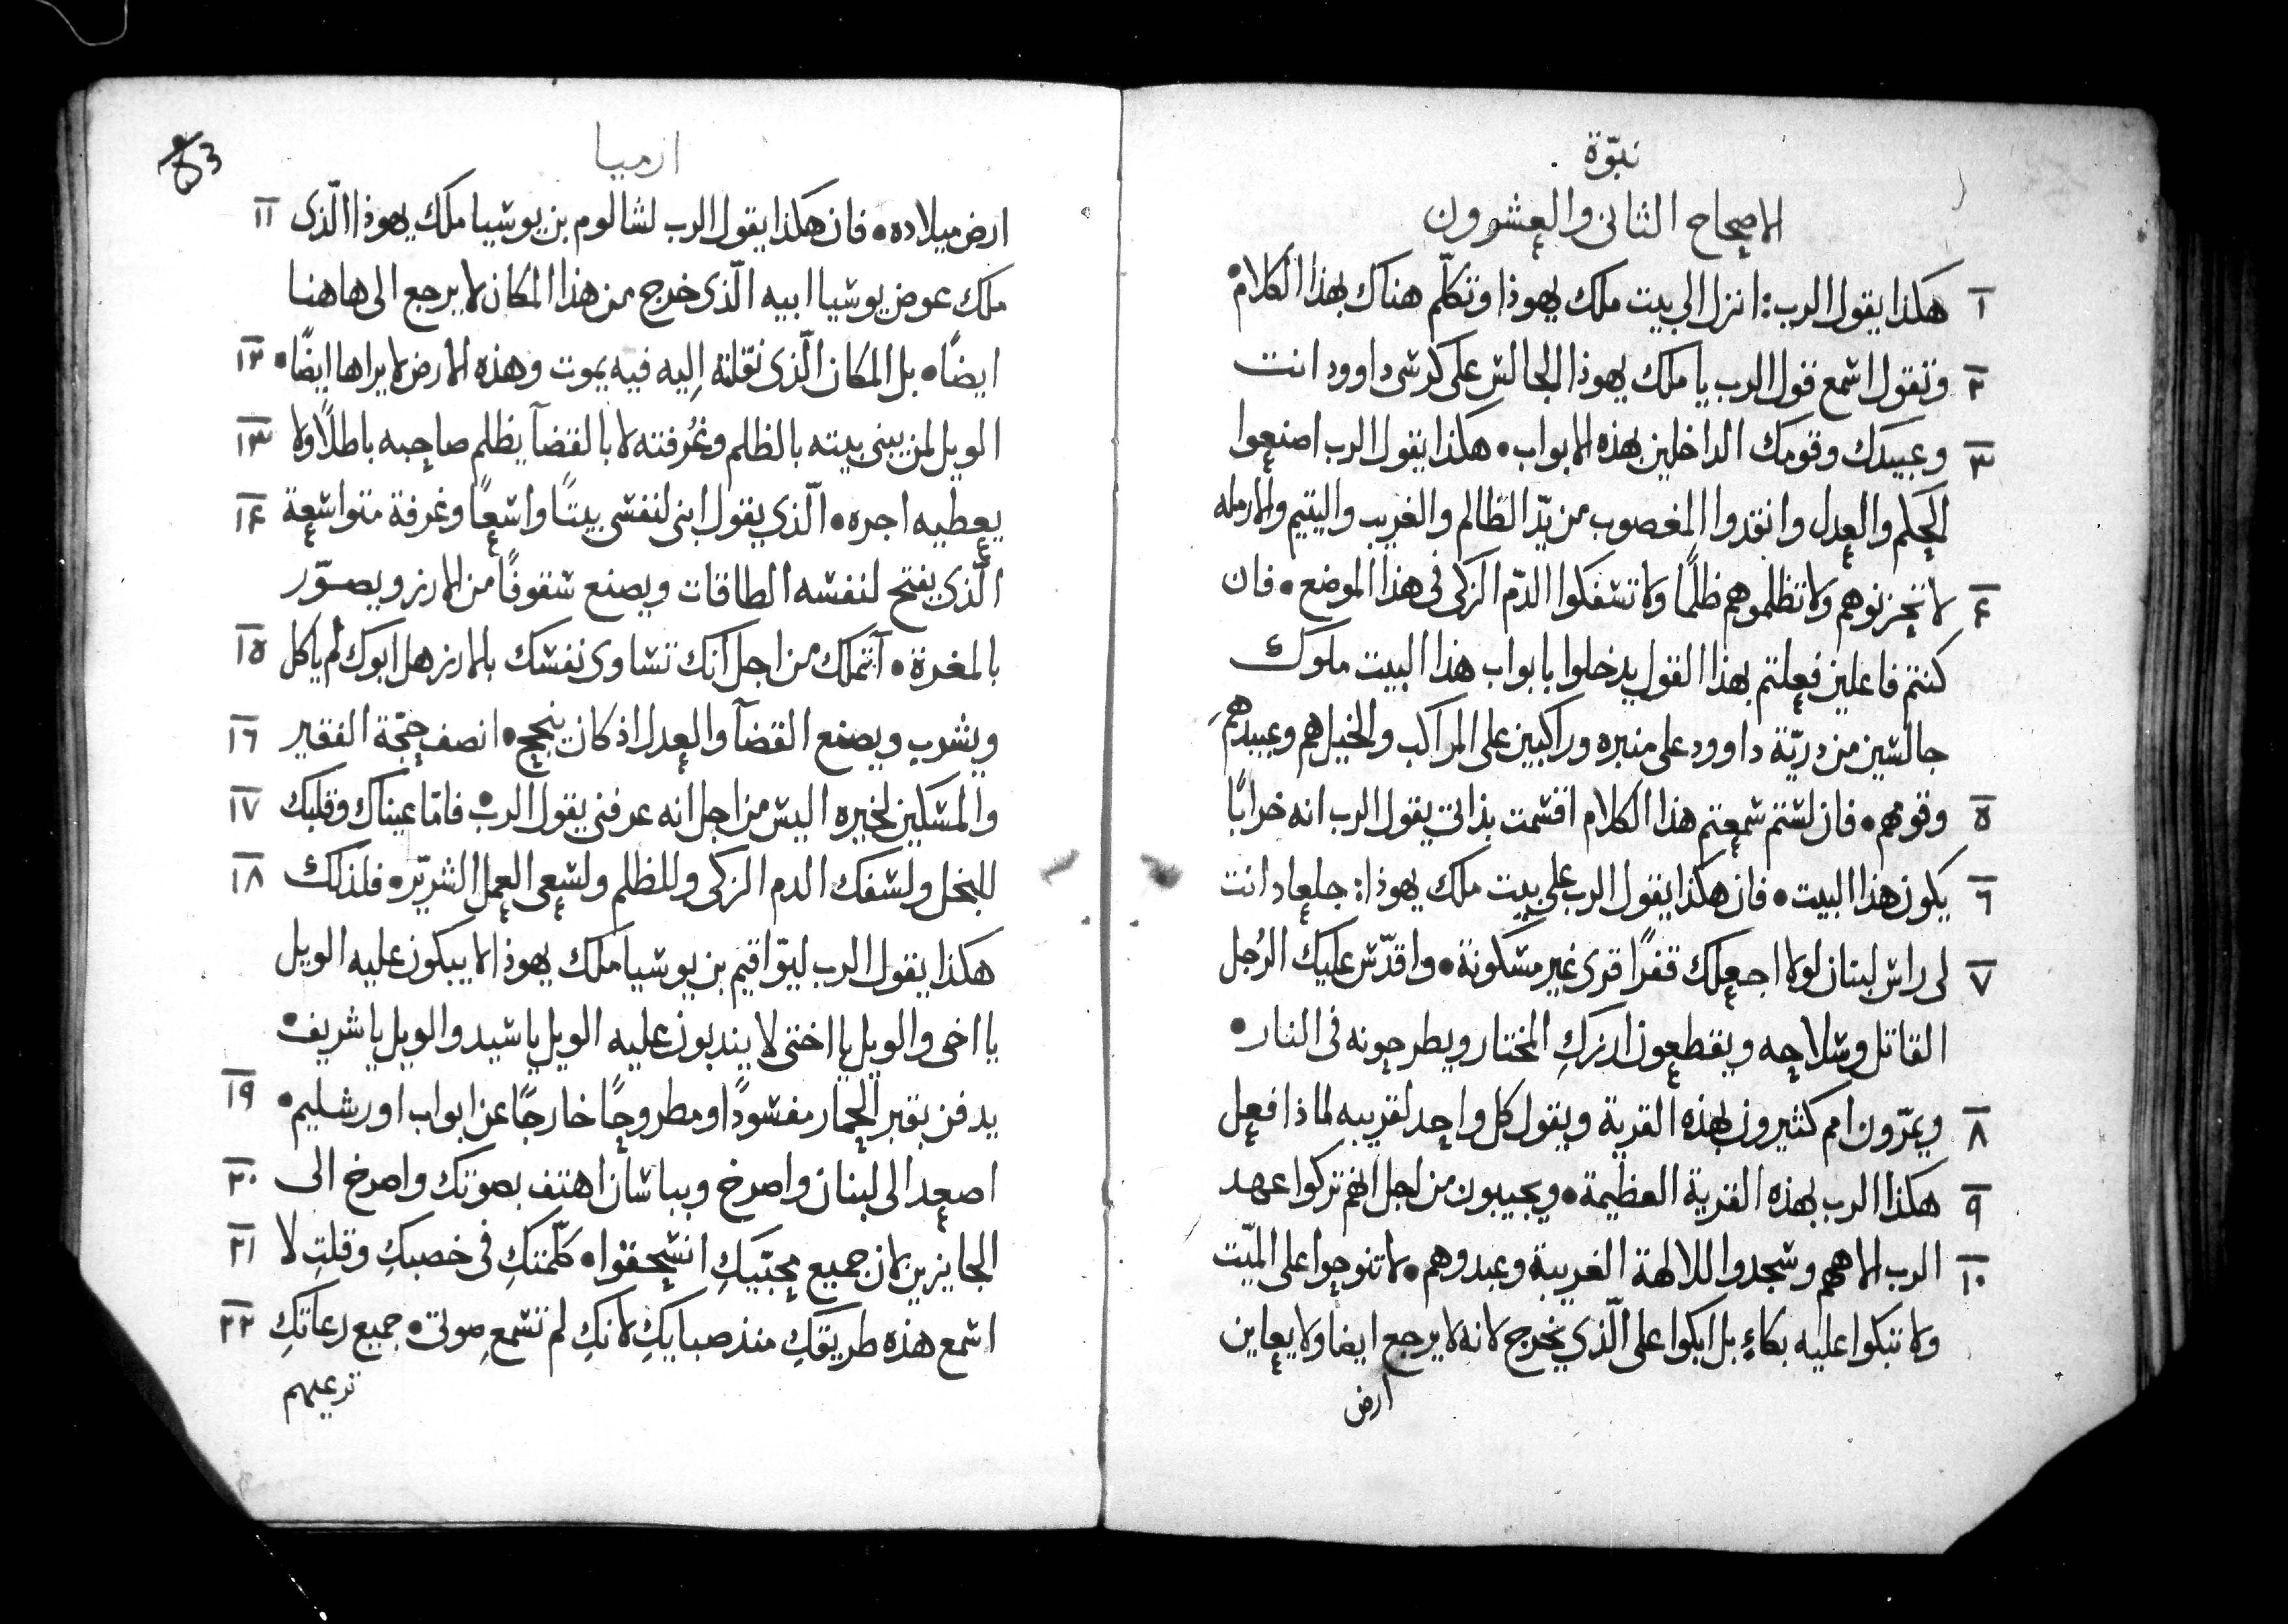 نبوّة
الاصحاح الثانى والعشرون
١ هكذا يقول الرب: انزل الى بيت ملك يهوذا وتكلّم هناك بهذا الكلام
٢ وتقول اسمع قول الرب يا ملك يهوذا الجالس على كرسى داوود انت
٣ وعبيدك وقومك الداخلين بهذه الابواب • هكذا يقول الرب اصنعوا
الحكم والعدل وانقدوا المغصوب من يدّ الظالم والغريب واليتيم والارمله
٤ لا تحزنوهم ولا تظلموهم ظلمًا ولا تسفكوا الدّم الزكى فى هذا الموضع • فان
كنتم فاعلين فعلتم بهذا القول يدخلوا بابواب هذا البيت ملوك
جالسين من دريّة داوود على منبره وراكبين على المراكب والخيل هم وعبيدهم
٥ وقومهم • فان لستم سمعتم هذا الكلام اقسمت بذاتى يقول الرب انه خرابًا
٦ يكون هذا البيت • فان هكذا يقول الرب على بيت ملك يهوذا: جلعاد انت
٧ لى راس لبنان لولا اجعلك قفرًا قرى غير مسكونة • واقدّس عليك الرُجل
القاتل وسلاحه ويقطعون ارزكِ المختار ويطرحونه فى النار •
٨ ويمرّون امم كثيرون بهذه القرية ويقول كل واحد لقريبه لماذا فعل
٩ هكذا الرب بهذه القرية العظيمة • ويجيبون من اجل انهم تركوا عهد
١٠ الرب الاههم وسجدوا للالهة الغريبة وعبدوهم • لا تنوحوا على الميّت
ولا تبكوا عليه بكاءٍ بل ابكوا على الّذي يخرج لانه لا يرجع ايضا ولا يعاين
ارض
ارميا
53
ارض ميلاده • فان هكذا يقول الرب لشالوم بن يوشيا ملك يهوذا الّذى ١١
ملك عوض يوشيا ابيه الّذى خرج من هذا المكان لا يرجع الى هاهنا
ايضًا • بل المكان الّذى نقلته إليه فيه يموت وهذه الارض لا يراها ايضًا • ١٢
الويل لمن يبنى بيته بالظلم وغُرفته لا بالقضآ يظلم صاحبه باطلًا ولا ١٣
يعطيه اجره • الّذي يقول ابنى لنفسى بيتًا واسعًا وغرفة متواسعة ١٤
الّذي يفتح لنفسه الطاقات ويصنع سقوفًا من الارز ويصوّر
بالمغرة • آتملك من اجل انك تساوى نفسك بالارز هل ابوك لم ياكل ١٥
ويشرب ويصنع القضآ والعدل اذ كان ينجح • انصف حجّة الفقير ١٦
والمسكين لخيره اليس من اجل انه عرفنى يقول الرب • فامّا عيناك وقلبك ١٧
للبخل ولسفك الدم الزكى وللظلم ولسعى العمل الشريّر • فلذلك ١٨
هكذا يقول الرب ليوّاقيم بن يوشيا ملك يهوذا لا يبكون عليه الويل
يا اخى والويل يا اختى لا يندبون عليه الويل يا سيد والويل يا شريف •
يدفن بقبر الحمار مفسودًا ومطروحًا خارجًا عن ابواب اورشليم • ١٩
اصعد الى لبنان واصرخ وبباشان اهتف بصوتك واصرخ الى ٢٠
الجايزين لان جميع محبّيكِ انسحقوا • كلّمتكِ فى خصبكِ وقلتِ لا ٢١
اسمع هذه طريقكِ منذ صبايكِ لانكِ لم تسمع صوتى • جميع رعاتكِ ٢٢
ترعيهم